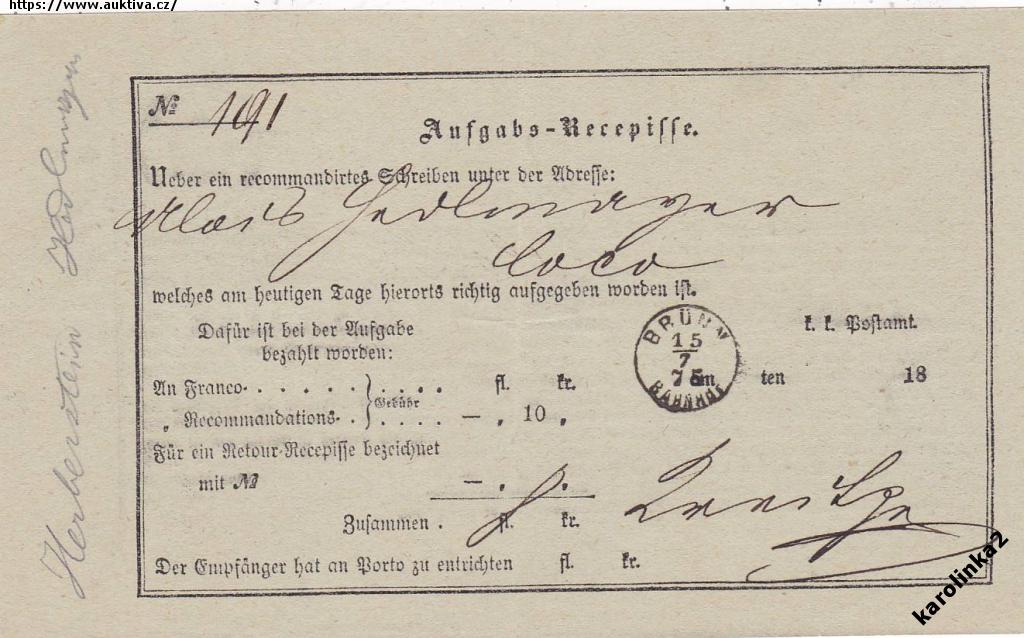 https://www.auktiva.cz/
№ 191
Aufgabs-Recepisse.
Ueber ein recommandirtes Schreiben unter der Adresse:
Alois Hedlmayer
loco
welches am heutigen Tage hierorts richtig aufgegeben worden ist.
Dafür ist bei der Aufgabe
bezahlt worden:
k. k. Postamt
BRÜNN
15
7
75
BAHNHOF
am ten 18
An Franco . . . . . . . . . fl. kr.
Gebühr
„ Recommandations . . . . . — „ 10 „
Für ein Retour-Recepisse bezeichnet
mit № — „ „
Zusammen . fl. kr.
Der Empfänger hat an Porto zu entrichten fl. kr.
Herberstein Hedlmayer
karolinka2